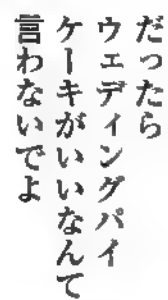 だったら
ウェディングパイ
ケーキがいいなんて
言わないでよ